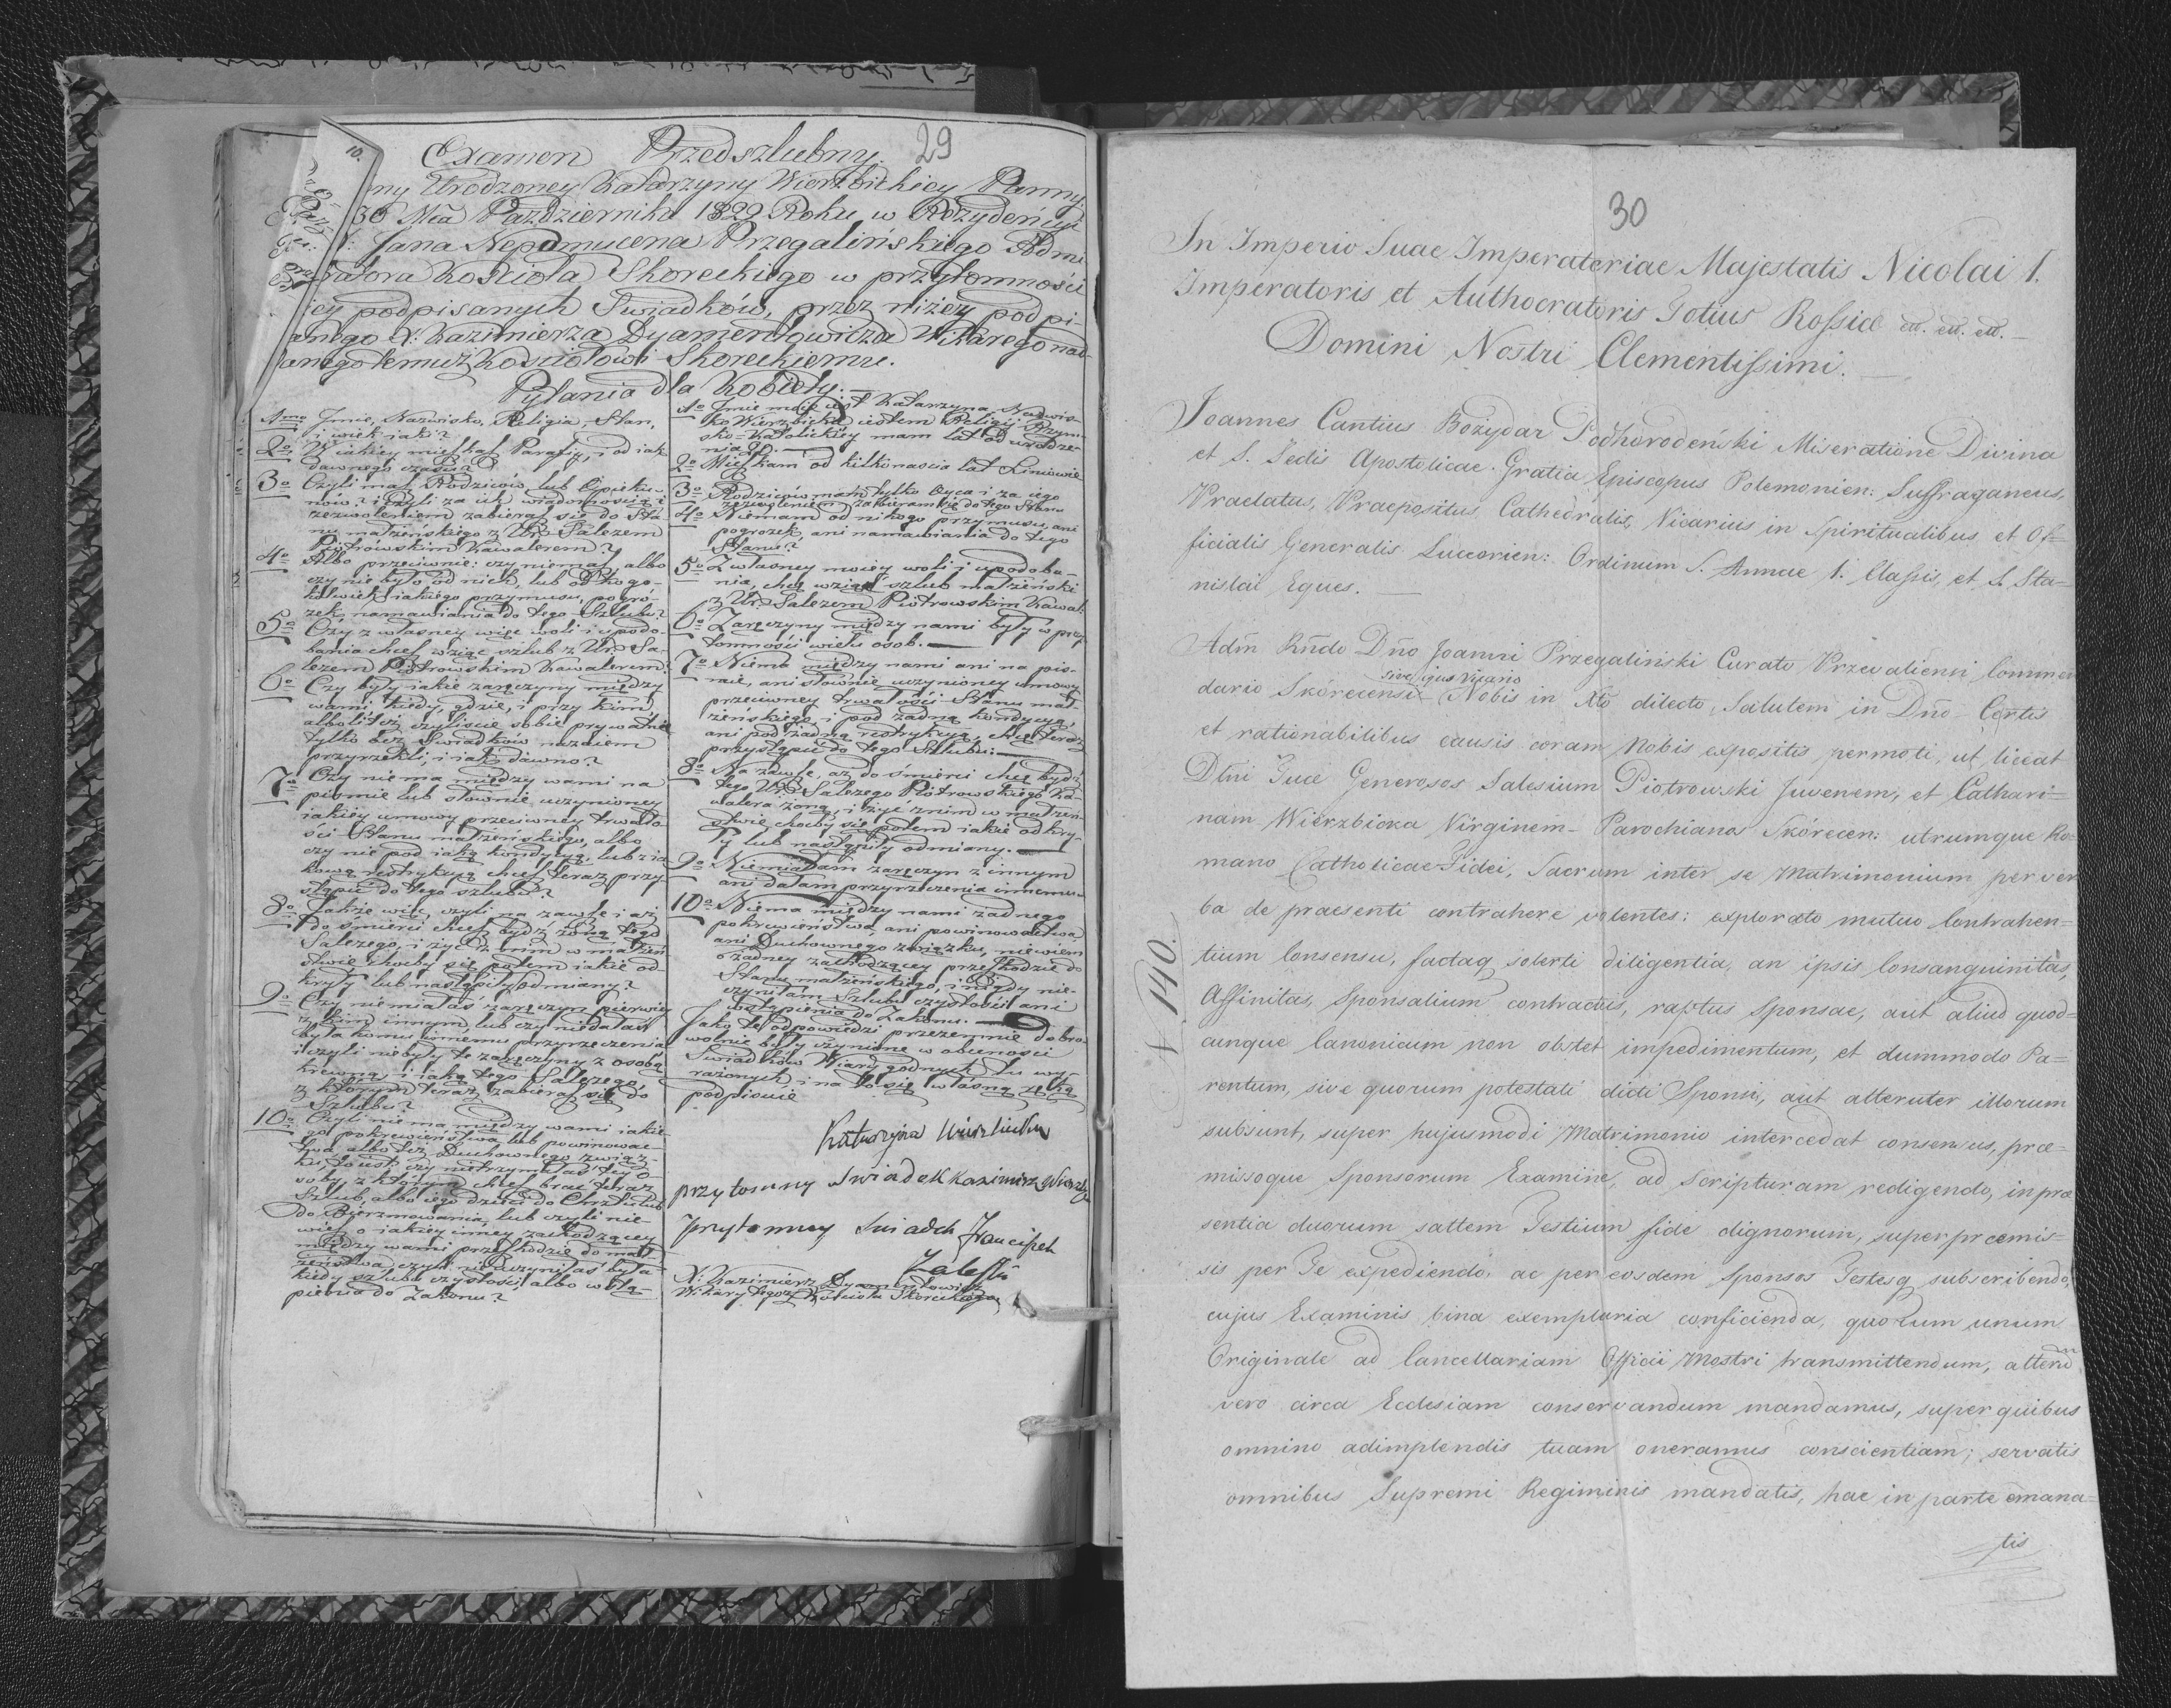 29
Examen Przedszlubny.
ny Urodzoney Katarzyny Wierzbickiey Panny.
30 Mca Pazdziernika 1829 Roku w Rezydencyi
X: Jana Nepomucena Przegalińskiego Admi
ratora Kościoła Skoreckiego w przytomności
iey podpisanych Swiadków, przez niżey podpi-
anego X: Kazimierza Dyamentowicza Wikarego nad-
anego temuż Kościołowi Skoreckiemu.
Pytania dla Kobiety.
1mo Jmie, Nazwisko, Religia, Stan,
i wiek iaki?
2o W iakiey mieszkasz Parafij, i od iak
dawnego czasu?
3o Czyli masz Rodziców, lub Opieku-
nów? i czyli za ich wiadomością i
zezwoleniem zabierasz się do Sta
nu matżeńskiego z Ur: Salezem
Piotrowskim Kawalerem?
4o Albo przeciwnie: czy niemasz, albo
czy nie było od nich, lub od kogo-
kolwiek iakiego przymusu, pogró-
żek, namawiania do tego Szlubu?
5o Czy z własney więc woli i upodo-
bania chcesz wziąć szlub z Ur: Sa-
lezem Piotrowskim Kawalerem?
6o Czy były iakie zaręczyny między
wami kiedy, gdzie, i przy kim,
albo też czyliście sobie prywatnie
tylko bez Swiadków nazaiem
przyrzekli, i iak dawno?
7o Czy niema między wami na
pismie lub słownie uczynioney
iakiey umowy przeciwney trwało-
ści Stanu matżeńskiego, albo
czy nie pod iaką kondycyą, lub ia
kową restrykcyą chcesz teraz przy-
stąpić do tego szlubu?
8o Także więc, czyli na zawsze i aż
do śmierci chcesz bydź żoną tego
Salezego, i żyć z nim w matżeń
stwie choćby się potem iakie od-
kryły lub nastąpiły odmiany?
9o Czy niemiałaś zaręczyn pierwiey
z kim innym, lub czy niedałaś
była komu innemu przyrzeczenia
i czyli niebyły te zaręczyny z osobą
krewną iaką tego Salezego,
z którym teraz zabierasz się do
Szlubu?
10o Czyli niema między wami iakie-
goś pokrewieństwa, lub powinowac-
twa, albo też Duchownego związ-
ku, to iest: czy nietrzymałaś tey o-
soby, z którym chcesz brać teraz
Szlub, albo iego dzieci do Chrztu lub
do Bierzmowania, lub czyli nie-
wiesz o iakiey inney zachodzącey
między wami przeszkodzie do mat-
żeństwa, czyli nieuczyniłaś była
kiedy szlubu czystości, albo wstą-
pienia do Zakonu?
1o Jmie moie iest Katarzyna, Nazwis-
ko Wierzbicka, iestem Religij Rzym-
sko-Katolickiey mam lat od urodze-
nia
2o Mieszkam od kilkonascia lat
3o Rodziców mam tylko Oyca i za iego
zezwoleniem zabieram się do tego Stanu
4o Niemam od nikogo przymusu, ani
pogrozek, ani namawiania do tego
Stanu?
5o Z własney moiey woli i upodoba-
nia, chcę wziąć szlub matżeński
z Ur: Salezem Piotrowskim Kawal:
6o Zaręczyny między nami były w przy
tomności wielu osob.
7o Niema między nami ani na pis-
mie, ani słownie uczynioney umowy
przeciwney trwałości Stanu mat-
żeńskiego, i pod żadną kondycyą,
ani pod żadną restrykcyą, chcę teraz
przystąpić do tego Szlubu.
8o Na zawsze, aż do śmierci chcę bydź
tego Ur: Salezego Piotrowskiego Ka-
walera żoną, i żyć z nim w matżeń-
stwie, choćby się potem iakie odkry-
ły lub nastąpiły odmiany.
9o Niemiałam zaręczyn z innym
ani dałam przyrzeczenia innemu
10o Niema między nami żadnego
pokrewieństwa, ani powinowactwa,
ani Duchownego związku, niewiem
o żadney zachodzącey przeszkodzie do
Stanu matżeńskiego, i nigdy nie-
czyniłam Szlubu czystości ani
wstąpienia do Zakonu.
Jako te odpowiedzi przezemnie dobro-
wolnie były uczynione w obecności
Swiadków Wiary godnych tu wy-
rażonych, i na to się własną ręką
podpisuie
Katarzyna Wierzbicka
przytomny Swiadek Kazimirz
przytomny Swiadek Franciszek
Zaleski
X: Kazimierz Dyamentowicz
Wikary tegoż Kościoła Skoreckiego
30
In Imperio Suae Imperatoriae Majestatis Nicolai I.
Imperatoris et Authocratoris Totius Rossiae ett. ett. ett.
Domini Nostri Clementissimi.
Joannes Cantius Bożydar Podhorodeński Miseratione Divina
et S. Sedis Apostolicae Gratia Episcopus Polemonien: Suffraganeus,
Praelatus, Praepositus, Cathedralis, Vicarius in Spiritualibus et Of=
ficialis Generalis Luceorien: Ordinum S. Annae 1. Classis, et S. Sta-
nislai Eques.
Adm Rndo Dno Joanni Przegaliński Curato Przewalienni Commen
sive ejus Vicario
dario Skórecensi Nobis in Xto dilecto, Salutem in Dno Certis
et rationabilibus causis coram Nobis expositis permoti, ut liceat
Dtni Tuae Generosos Salesium Piotrowski Juvenem, et Cathari=
nam Wierzbicka Virginem Parochianos Skórecen: utrumque Ro=
mano Catholicae Fidei, Sacrum inter se Matrimonium per ver
ba de praesenti contrahere volentes: explorato mutuo Contrahen=
tium Consensu, factaq solerti diligentia, an ipsis Consanguinitas,
Affinitas, Sponsalium contractus, raptus Sponsae, aut aliud quod=
cunque Canonicum non obstet impedimentum, et dummodo Pa=
rentum, sive quorum potestati dicti Sponsi, aut alteruter illorum
subsunt, super hujusmodi Matrimonio intercedat consensus, prae=
missoque Sponsorum Examine, ad Scripturam redigendo, in prae
sentia duorum saltem Testium fide dignorum, super praemis=
sis per Te expediendo, ac per eosdem Sponsos Testesq subscribendo,
cujus Examinis bina exemplaria conficienda, quorum unum
Originale ad Cancellariam Officii Nostri transmittendum, alterum
vero circa Ecclesiam conservandum mandamus, super quibus
omnino adimplendis tuam oneramus conscientiam; servatis
omnibus Supremi Regiminis mandatis, hac in parte emana=
tis
N 140.